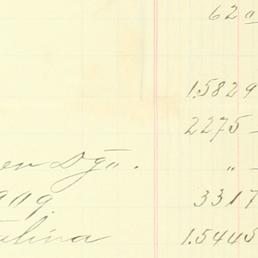 62
1.5829
2275 –
en Dgo. " –
909. 3317
talina 1.5445